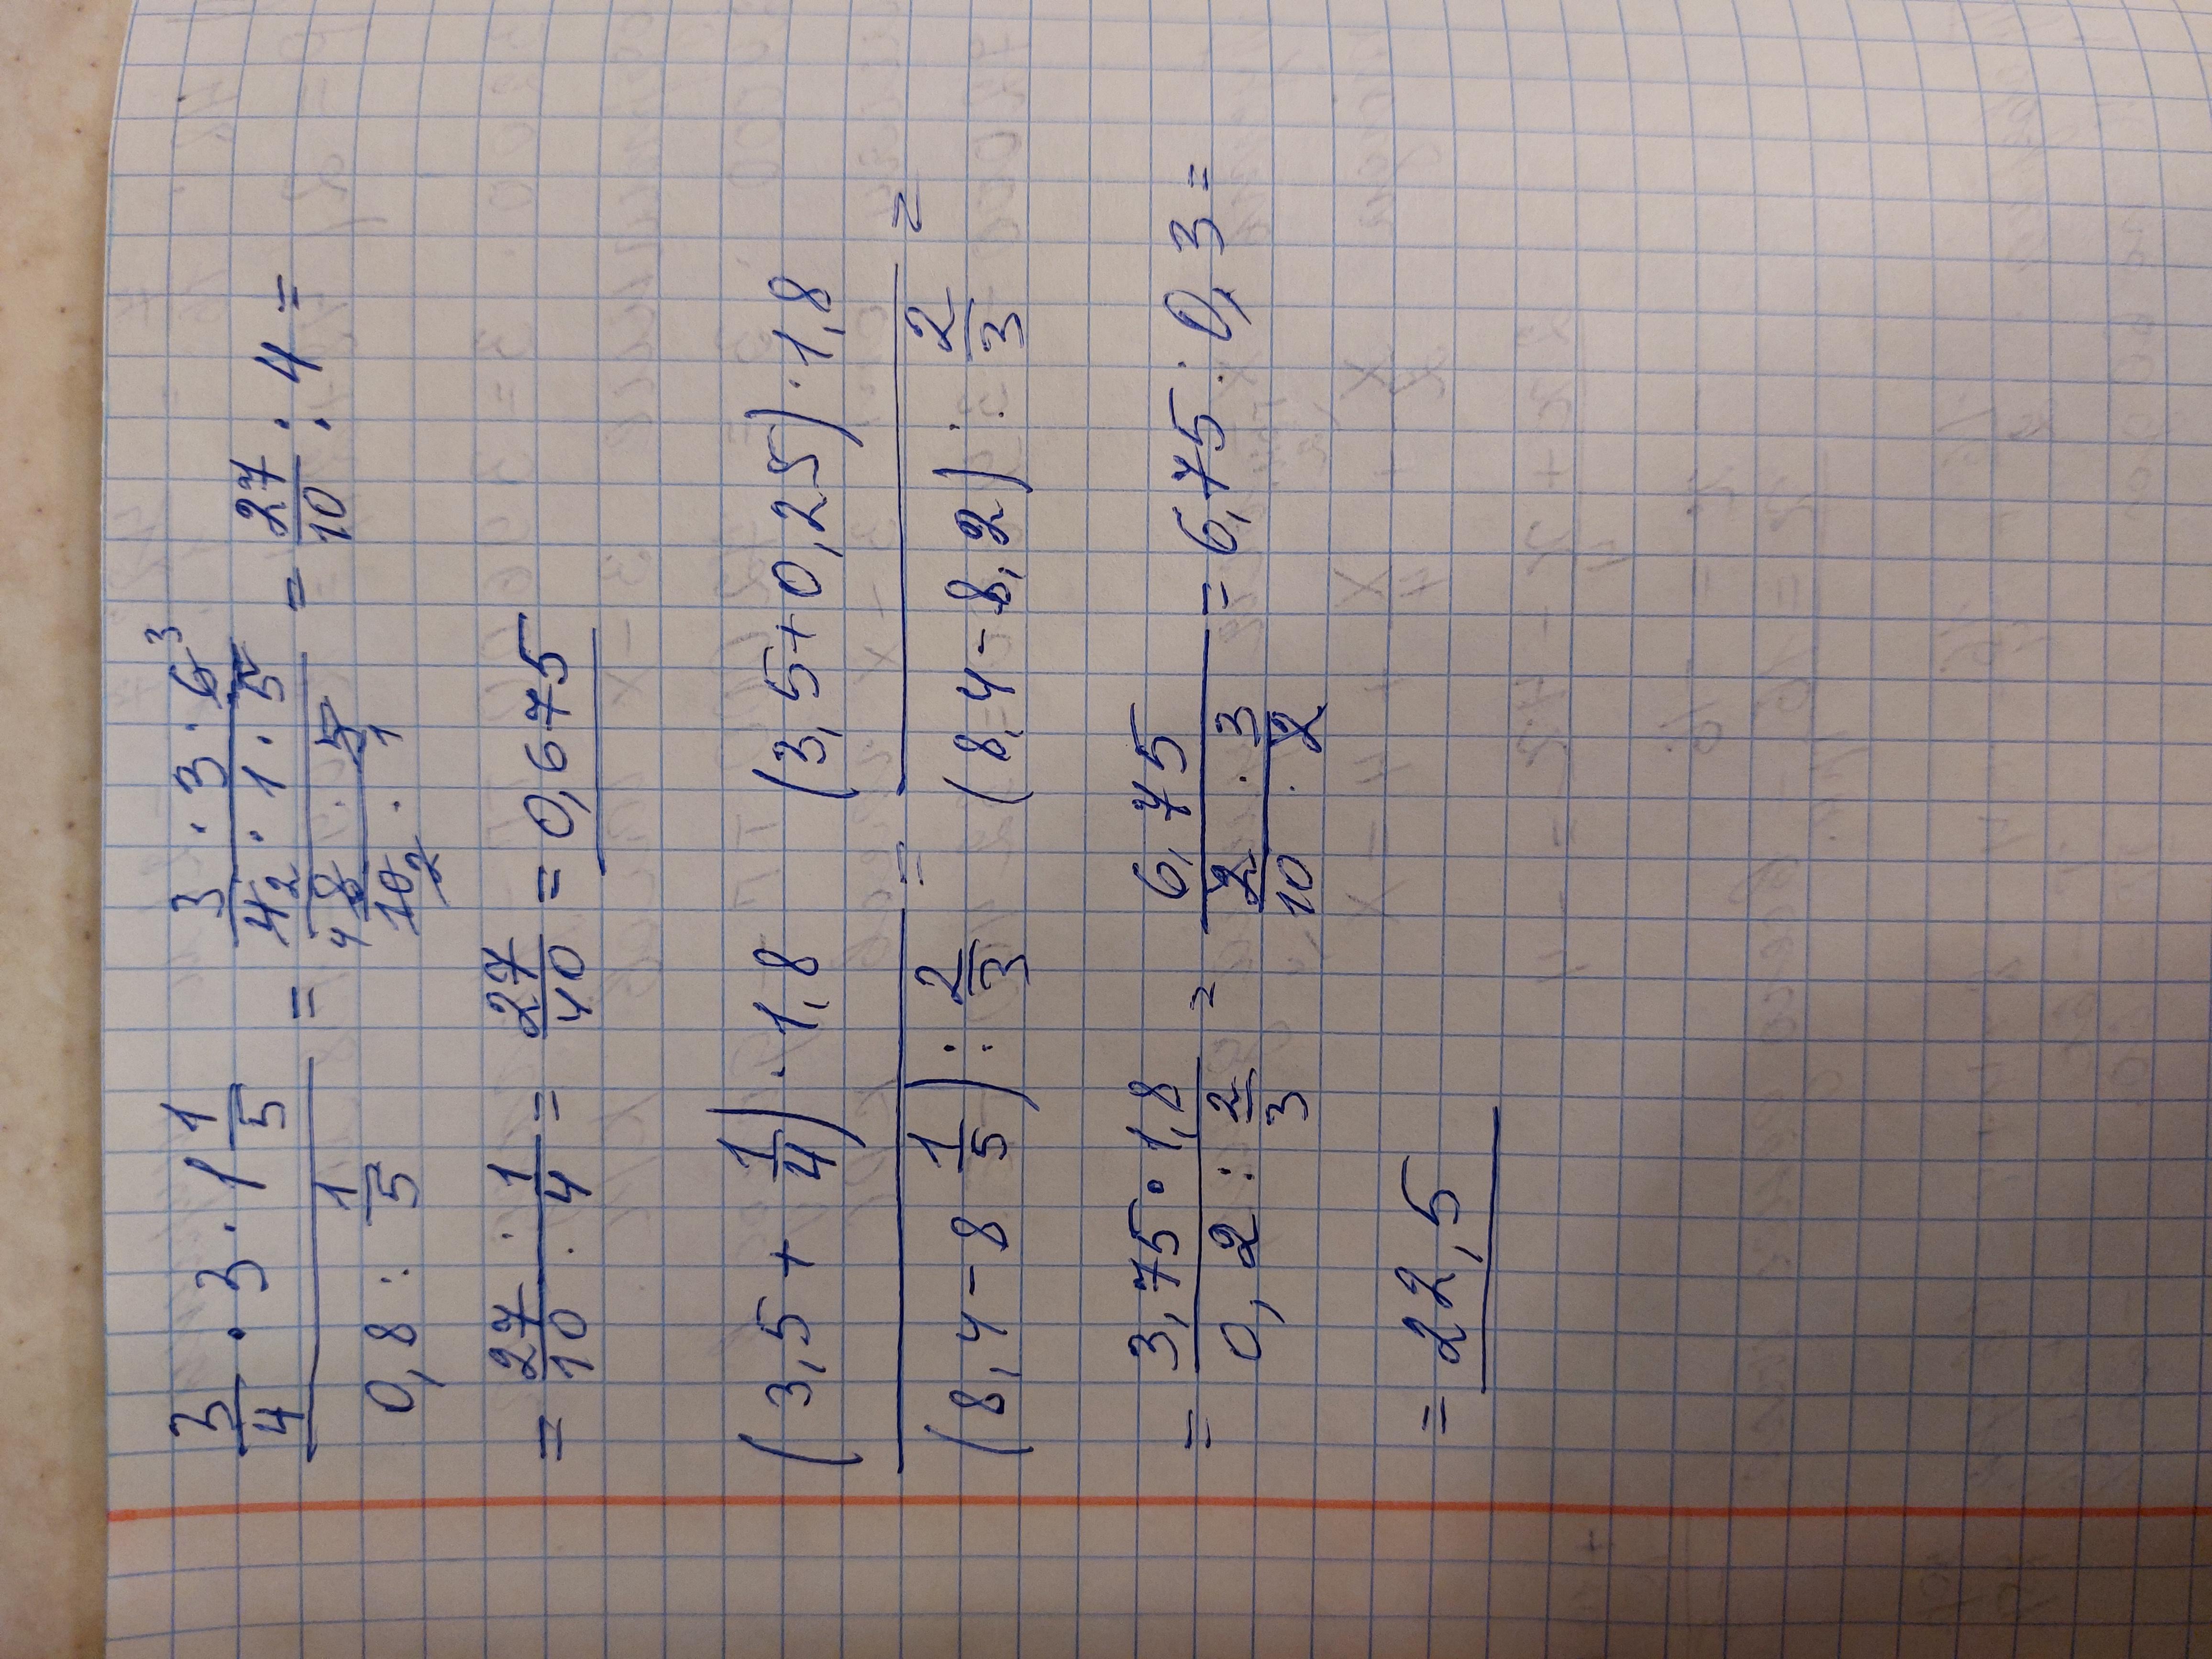 3/4 · 3 · 1 1/5 / 0,8 : 1/5 = 3 · 3 · 6 3 / 4 2 · 1 · 5 / 4 8 · 5 / 10 2 · 1 = 27/10 : 4 =
= 27/10 · 1/4 = 27/40 = 0,675
(3,5 + 1/4) · 1,8 / (8,4 - 8 1/5) : 2/3 = (3,5 + 0,25) · 1,8 / (8,4 - 8,2) : 2/3 =
= 3,75 · 1,8 / 0,2 : 2/3 = 6,75 / 2 · 3 / 10 · 2 = 6,75 : 0,3 =
= 22,5